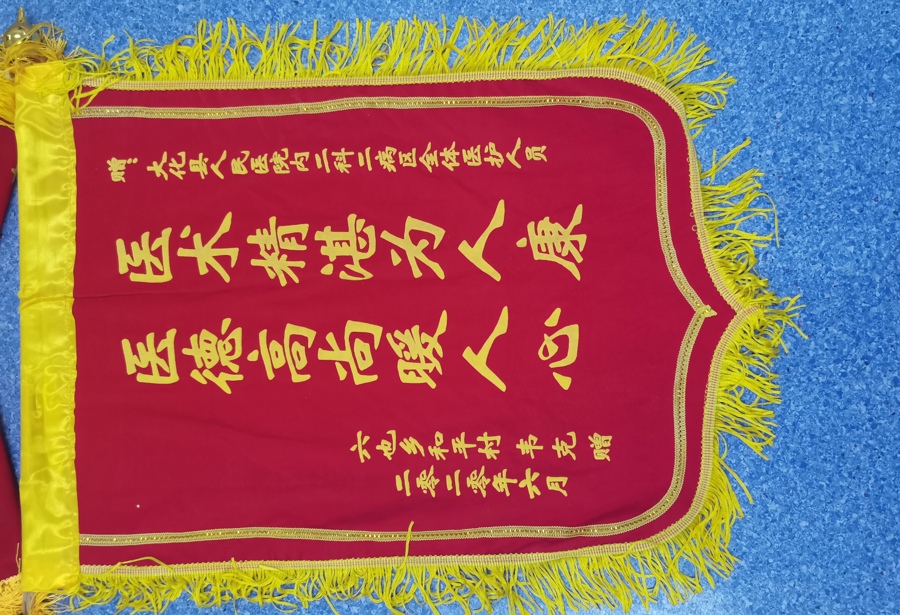 赠：大化县人民医院内二科二病区全体医护人员
医术精湛为人康
医德高尚暖人心
六也乡和平村 韦克赠
二零二零年六月